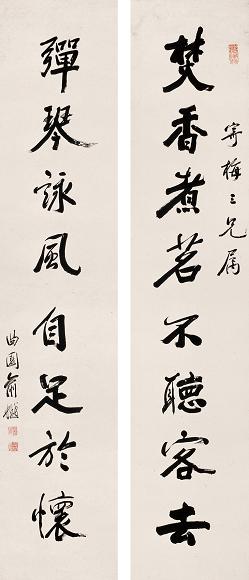 焚香煮茗不聽客去
寄梅三兄屬
彈琴詠風自足於懷
曲園俞樾